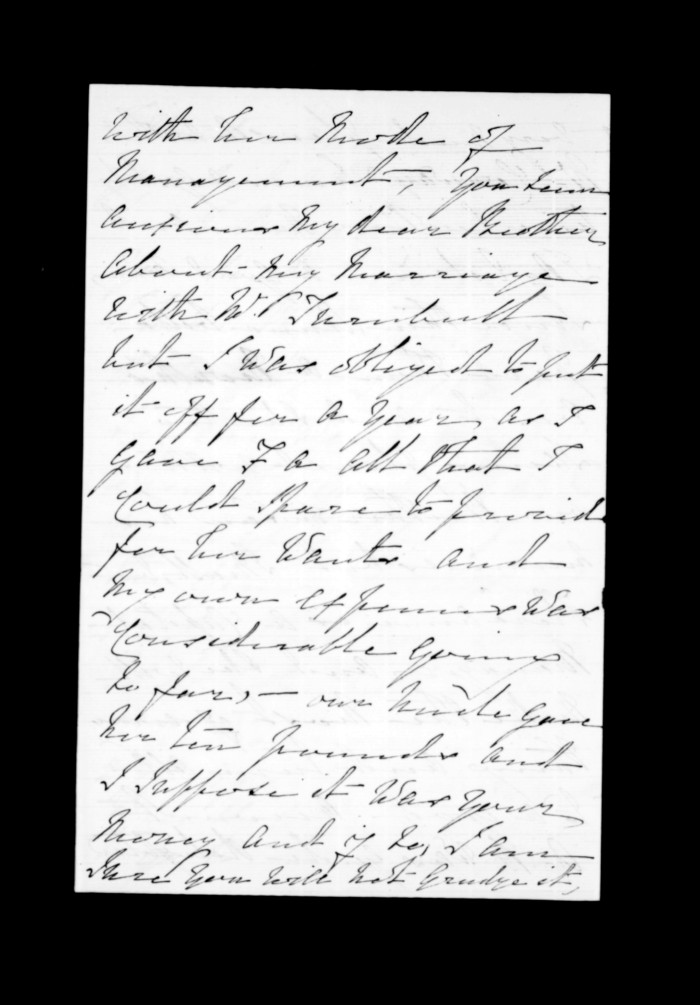 with her Mode of
Management, You seem
anxious My dear Brother
about my Marriage
with Mr Turnbull
but I was obliged to put
it off for a year, as I
gave F a all that I
Could Spare to provide
for her Wants and
My own expenses Was
Considerable going
so far, — our Uncle gave
her ten pounds and
I Suppose it Was Your
Money and if so, I am
Sure You Will not Grudge it,